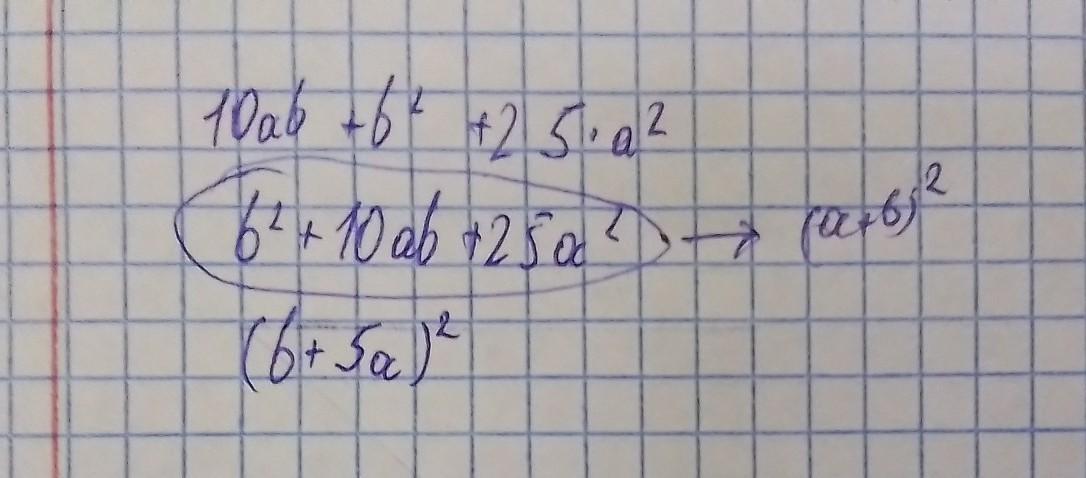 10ab + b² + 25 · a²
b² + 10ab + 25a² → (a+b)²
(b + 5a)²